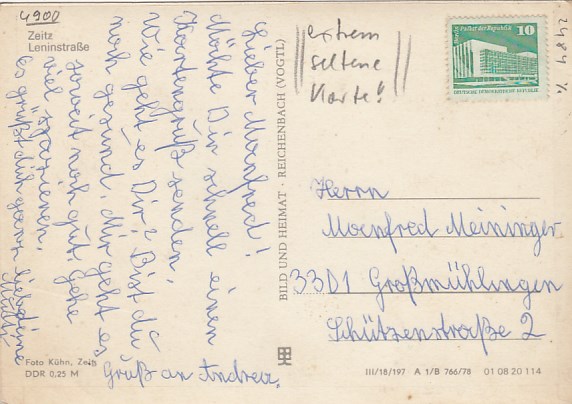 4900
Zeitz
Leninstraße
Lieber Manfred!
Möchte Dir schnell einen
Kartengruß senden.
Wie geht es Dir? Bist du
noch gesund. Mir geht es
soweit noch gut. Gehe
viel spazieren.
Es grüßt dich ganz lieb deine
Mutti
Gruß an Andrea.
Foto Kühn, Zeitz
DDR 0,25 M
BILD UND HEIMAT · REICHENBACH (VOGTL)
extrem
seltene
Karte!
10
DEUTSCHE DEMOKRATISCHE REPUBLIK
Herrn
Manfred Meininger
33D1 Großmühlingen
Schützenstraße 2
III/18/197 A 1/B 766/78 01 08 20 114